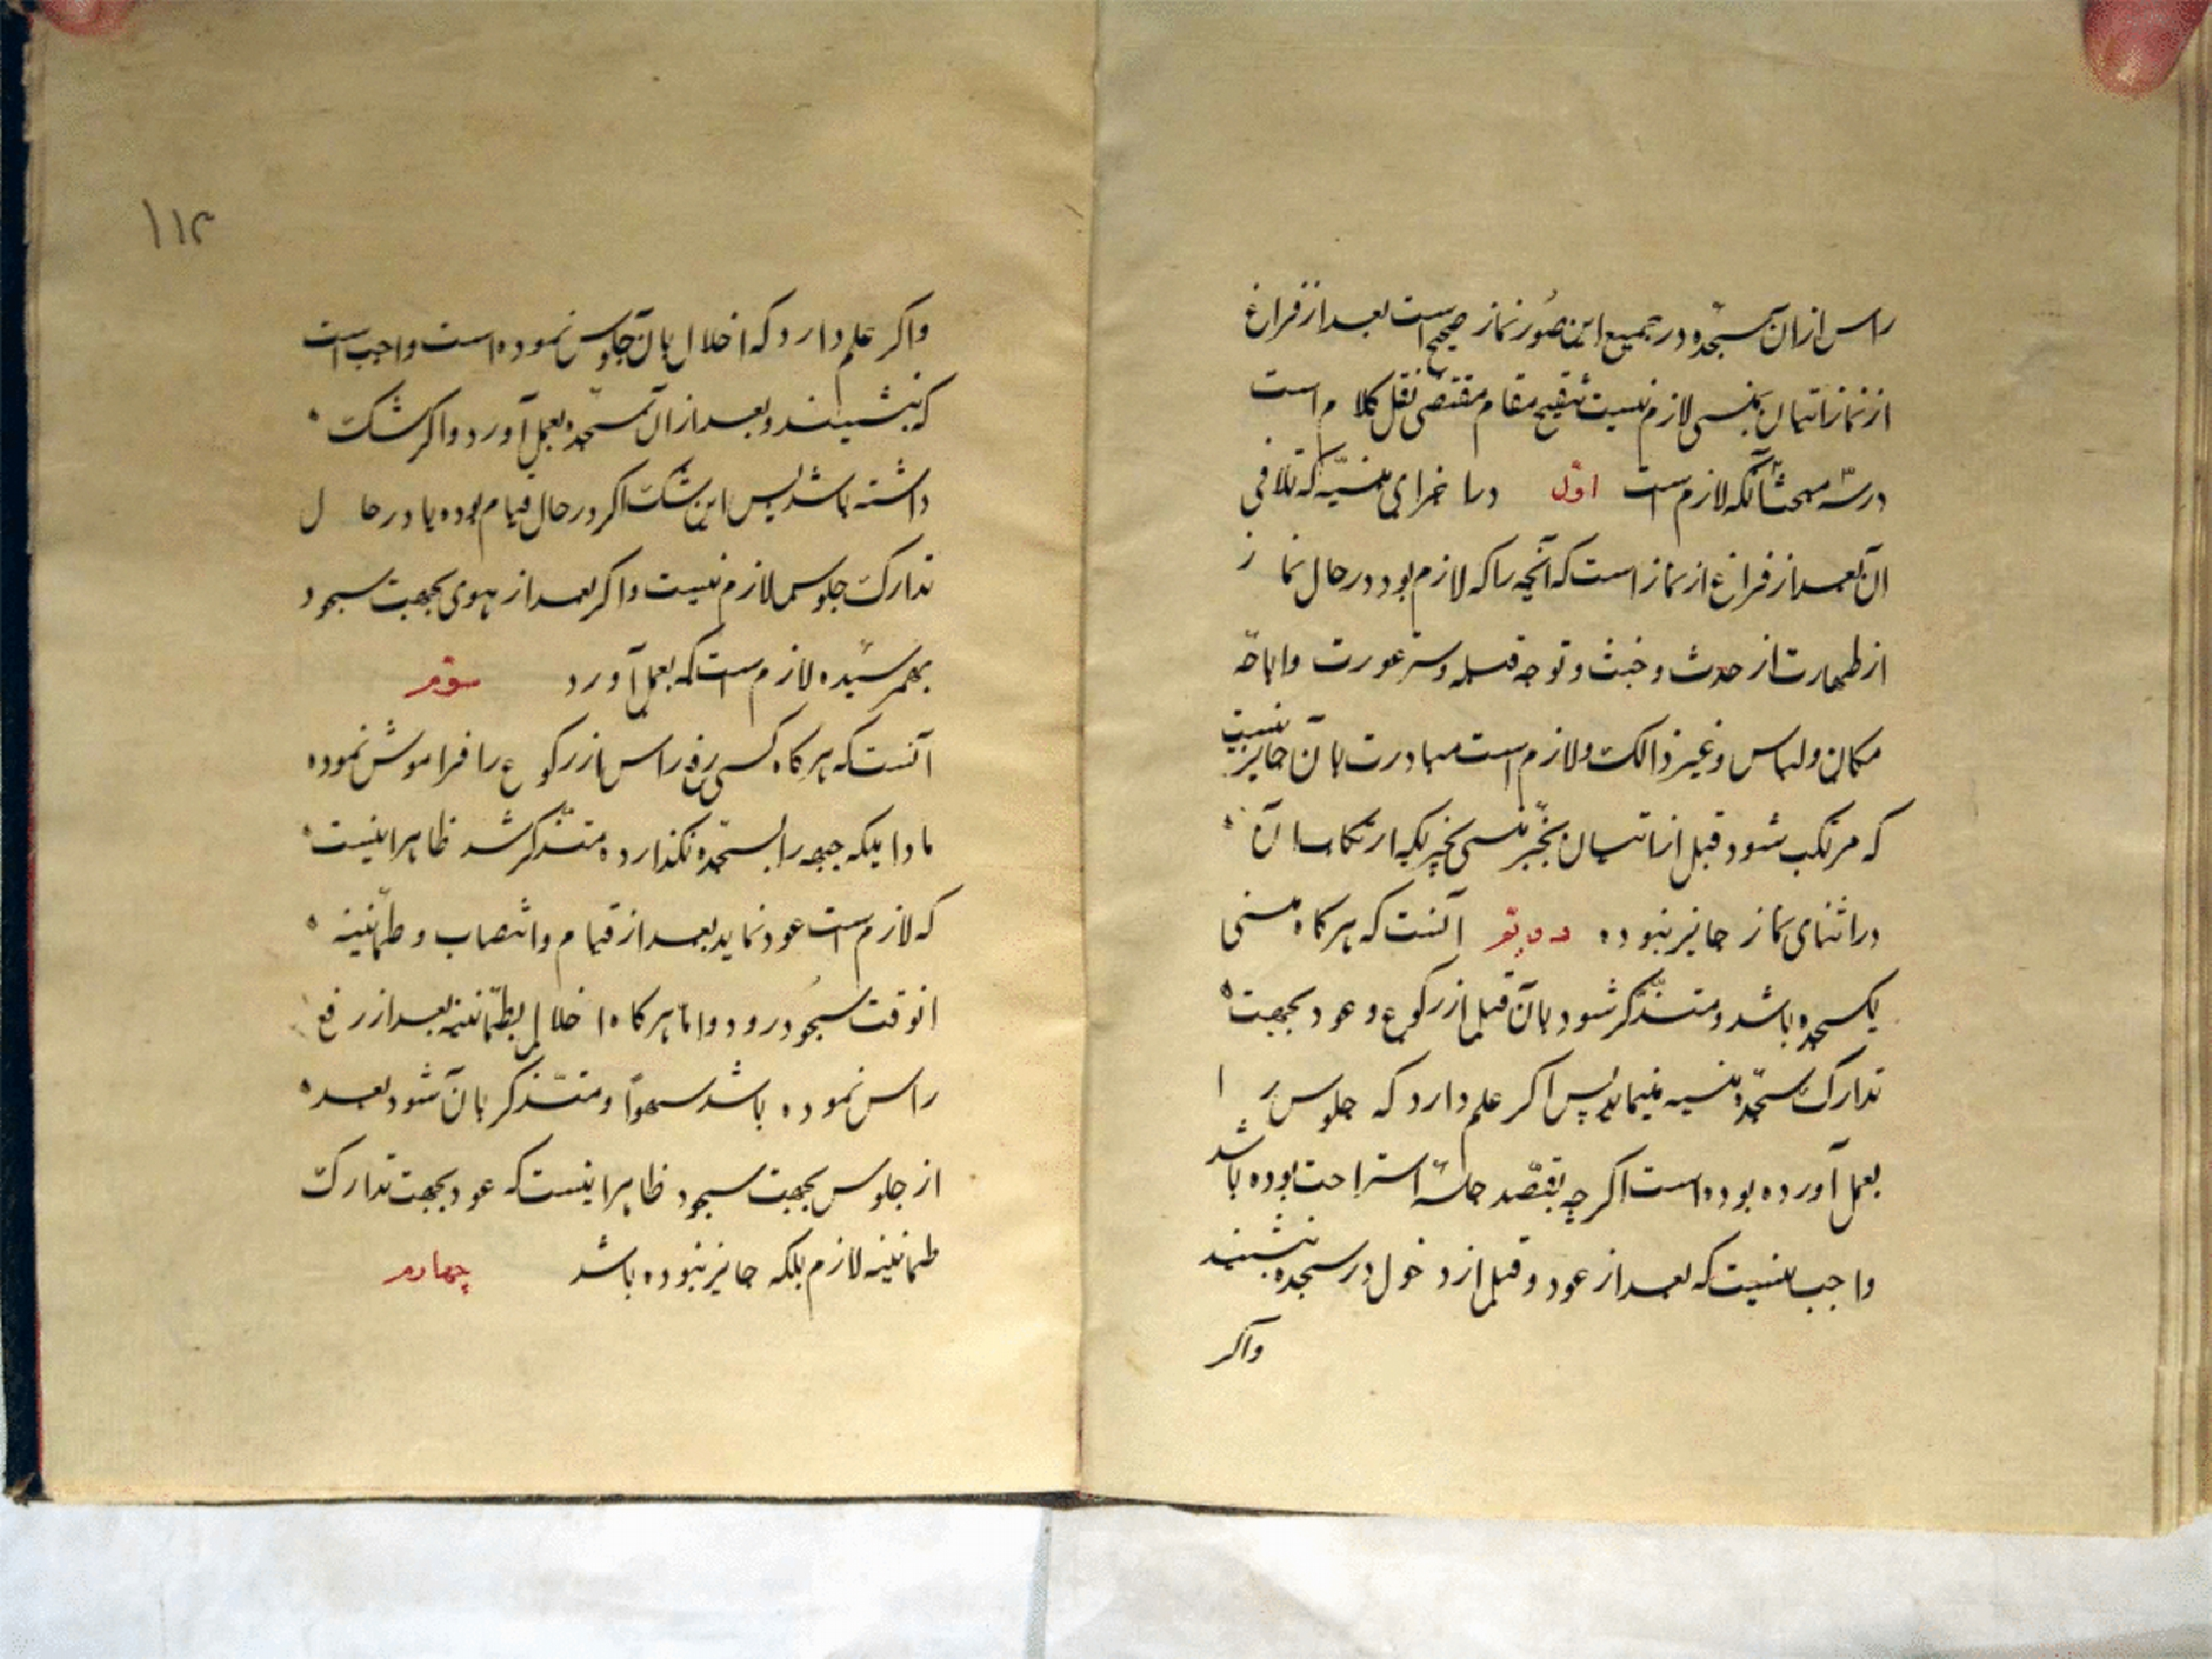 راس ازان سجده و در جمیع این صُور نماز صحیح است بعد از فراغ
از نماز اتیان بمنسی لازم نیست تنقیح مقام مقتضی نقل کلام است
در سه مبحث اول آنکه لازم است در اجزای منسیّه که تلافی
ان بعد از فراغ از نماز است که آنچه را که لازم بود در حال نماز
از طهارت از حدث و خبث و توجه قبله و ستر عورت و اباحهٔ
مکان و لباس و غیر ذالک و لازم است مبادرت بآن جایز نیست
که مرتکب شود قبل از اتیان بجز منسی بچیزیکه ارتکاب آن
در اثنای نماز جایز نبوده دویّم آنست که هرگاه منسی
یکسجده باشد و متذکّر شود بآن قبل از رکوع و عود بجهت
تدارک سجدهٔ منسیه مینماید پس اگر علم دارد که جلوس را
بعمل آورده بوده است اگر چه بقصد جلسهٔ استراحت بوده باشد
واجب نیست که بعد از عود و قبل از دخول در سجده بنشیند
واگر
۱۱۳
واگر علم دارد که اخلال بآن جلوس نموده است واجب است
که بنشیند و بعد از ان سجده بعمل آورد و اگر شک
داشته باشد پس این شک اگر در حال قیام بوده یا در حال
تدارک جلوس لازم نیست و اگر بعد از هوی بجهت سجود
بهم رسیده لازم است که بعمل آورد سوّم
آنست که هرگاه کسی رفع راس از رکوع را فراموش نموده
مادامیکه جبهه را بسجده نگذارده متذکر شد ظاهر اینست
که لازم است عود نماید بعد از قیام و انتصاب و طمأنینه
انوقت سجود رود و امّا هرگاه اخلال بطمأنینه بعد از رفع
راس نموده باشد سهواً و متذکر بآن شود بعد
از جلوس بجهت سجود ظاهر اینست که عود بجهت تدارک
طمأنینه لازم بلکه جایز نبوده باشد چهارم